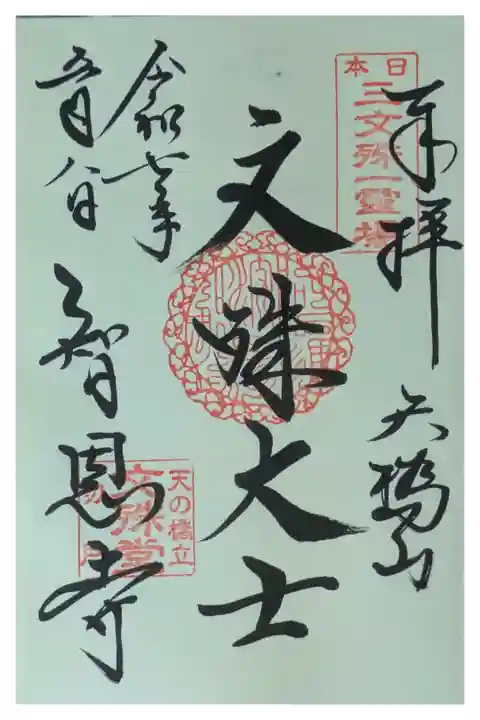 奉拝 天橋山
日本
三文殊一霊場
文殊大士
令和七年
五月八日
智恩寺
天の橋立
文殊堂